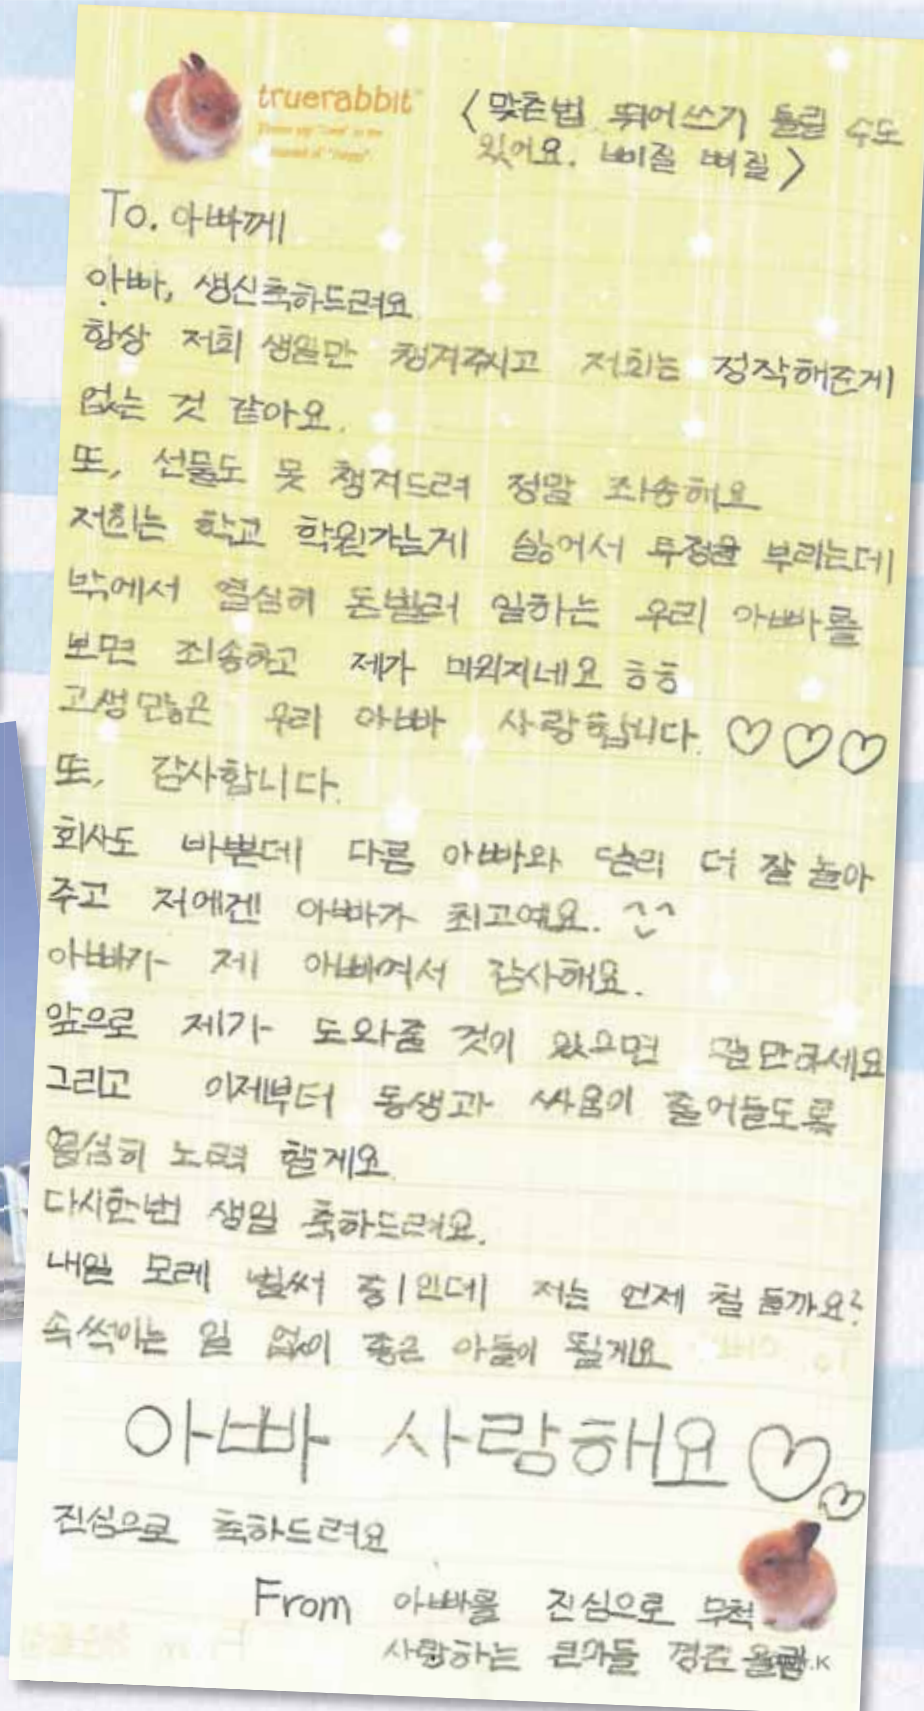 truerabbit
<맞춘법 뛰어쓰기 틀릴 수도
있어요. 삐질 삐질>
To. 아빠께
아빠, 생신축하드려요
항상 저희 생일만 챙겨주시고 저희는 정작해준게
없는 것 같아요.
또, 선물도 못 챙겨드려 정말 죄송해요
저희는 학교 학원가는게 싫어서 투정을 부리는데
밖에서 열심히 돈벌러 일하는 우리 아빠를
보면 죄송하고 제가 미워지네요 ㅎㅎ
고생많은 우리 아빠 사랑합니다. ♡♡♡
또, 감사합니다.
회사도 바쁜데 다름 아빠와 달리 더 잘 놀아
주고 저에겐 아빠가 최고예요. ^^
아빠가 제 아빠여서 감사해요.
앞으로 제가 도와줄 것이 있으면 말만하세요
그리고 이제부터 동생과 싸움이 줄어들도록
열심히 노력 할게요
다시한번 생일 축하드려요.
내일 모레 벌써 중1인데 저는 언제 철 들까요?
속썩이는 일 없이 좋은 아들이 될게요
아빠 사랑해요♡♡
진심으로 축하드려요
From 아빠를 진심으로 무척
사랑하는 큰아들 경준 올림